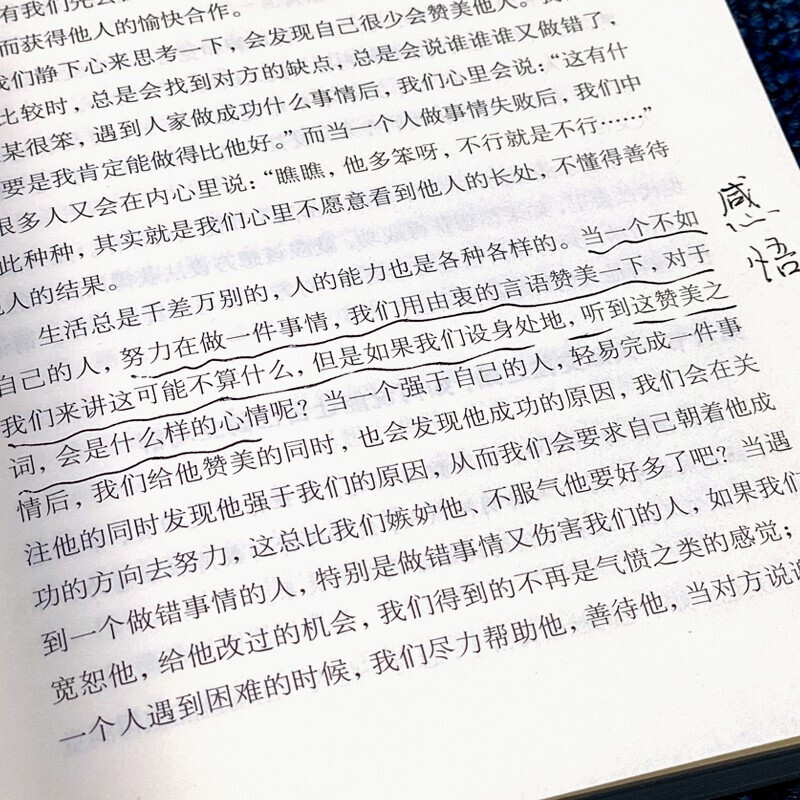 有我们先去
而获得他人的愉快合作。
我们静下心来思考一下，会发现自己很少会赞美他人。
比较时，总是会找到对方的缺点，总是会说谁谁谁又做错了，
某很笨，遇到人家做成功什么事情后，我们心里会说：“这有什
要是我肯定能做得比他好。”而当一个人做事情失败后，我们中
很多人又会在内心里说：“瞧瞧，他多笨呀，不行就是不行……”
此种种，其实就是我们心里不愿意看到他人的长处，不懂得善待
他人的结果。
生活总是千差万别的，人的能力也是各种各样的。当一个不如
自己的人，努力在做一件事情，我们用由衷的言语赞美一下，对于
我们来讲这可能不算什么，但是如果我们设身处地，听到这赞美之
词，会是什么样的心情呢？当一个强于自己的人，轻易完成一件事
情后，我们给他赞美的同时，也会发现他成功的原因，我们会在关
注他的同时发现他强于我们的原因，从而我们会要求自己朝着他成
功的方向去努力，这总比我们嫉妒他、不服气他要好多了吧？当遇
到一个做错事情的人，特别是做错事情又伤害我们的人，如果我们
宽恕他，给他改过的机会，我们得到的不再是气愤之类的感觉；
一个人遇到困难的时候，我们尽力帮助他，善待他，当对方说
感
悟